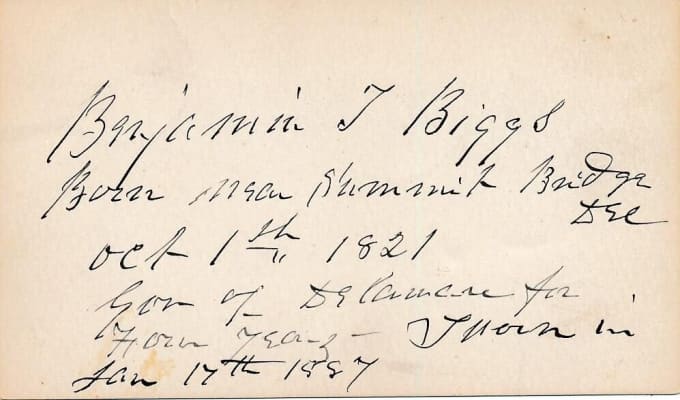 Benjamin T Biggs
Born near Summit Bridge
Del
Oct 1st 1821
Gov of Delaware for
Four Years - Sworn in
Jan 17th 1887